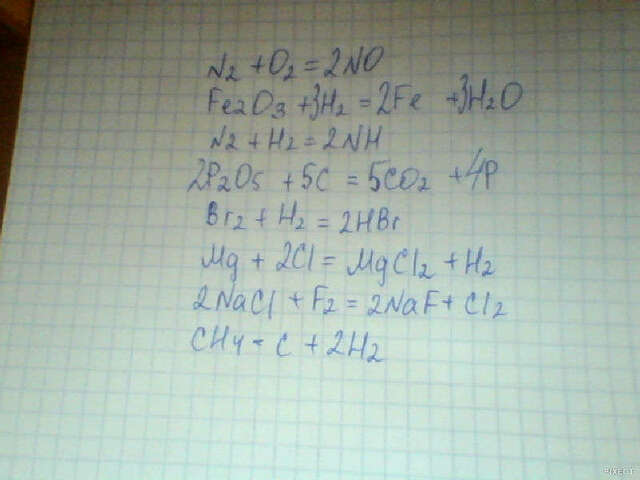 N₂ + O₂ = 2NO
Fe₂O₃ + 3H₂ = 2Fe + 3H₂O
N₂ + H₂ = 2NH
2P₂O₅ + 5C = 5CO₂ + 4P
Br₂ + H₂ = 2HBr
Mg + 2Cl = MgCl₂ + H₂
2NaCl + F₂ = 2NaF + Cl₂
CH₄ = C + 2H₂
PIXECT